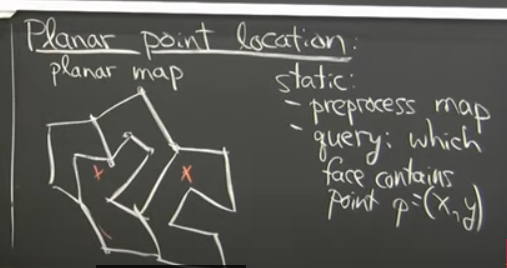 Planar point location:
planar map
static:
- preprocess map
- query: which
face contains
point p=(x,y)
x
x